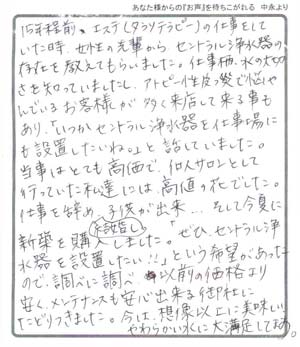 あなた様からの『お声』を待ちこがれる 中永より
15年程前、エステ(タラソテラピー)の仕事をして
いた時、女性の先輩から、セントラル浄水器の
存在を教えてもらいました。仕事柄、水の大切
さを知っていましたし、アトピー性皮ふ炎で悩や
んでいるお客様が多く来店して来る事も
あり、「いつかセントラル浄水器を仕事場に
も設置したいね。」と話していました。
当事はとても高価で、個人サロンとして
行っていた私達には高値の花でした。
仕事を辞め、子供が出来…そして今夏に
結婚し
新築を購入しました。「ぜひ、セントラル浄
水器を設置したい!!」という希望があった
ので、調べに調べ 以前の価格より
安く、メンテナンスも安心出来る御社に
たどりつきました。今は、想像以上に美味しい
やわらかい水に大満足してます。